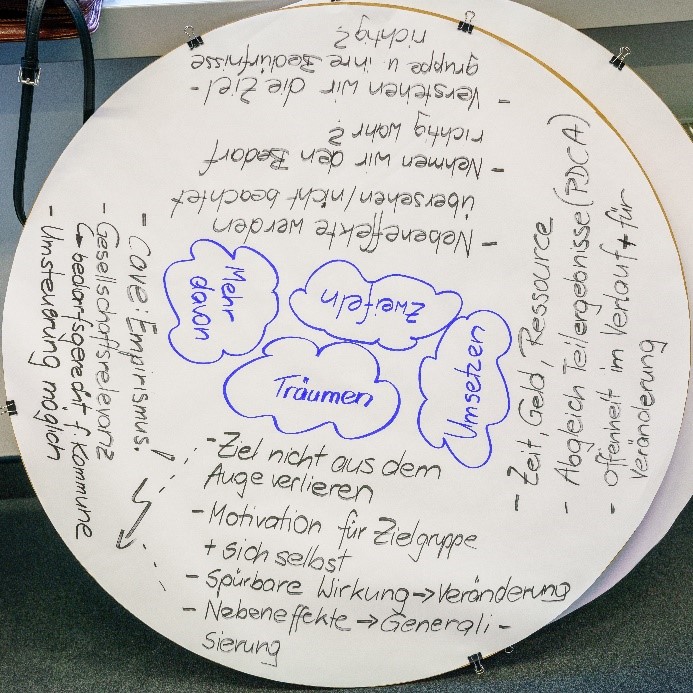 - Nebeneffekte werden
übersehen/nicht beachtet
- Nehmen wir den Bedarf
richtig wahr?
- Verstehen wir die Ziel-
gruppe u ihre Bedürfnisse
richtig?
Zweifeln
Mehr
davon
- Cave: Empirismus!
- Gesellschaftsrelevanz
↳ bedarfsgerecht f. Kommune
- Umsteuerung möglich
Umsetzen
- Zeit, Geld, Ressource
- Abgleich Teilergebnisse (PDCA)
- Offenheit im Verlauf + für
Veränderung
Träumen
- Ziel nicht aus dem
Auge verlieren
- Motivation für Zielgruppe
+ sich selbst
- Spürbare Wirkung → Veränderung
- Nebeneffekte → Generali-
sierung